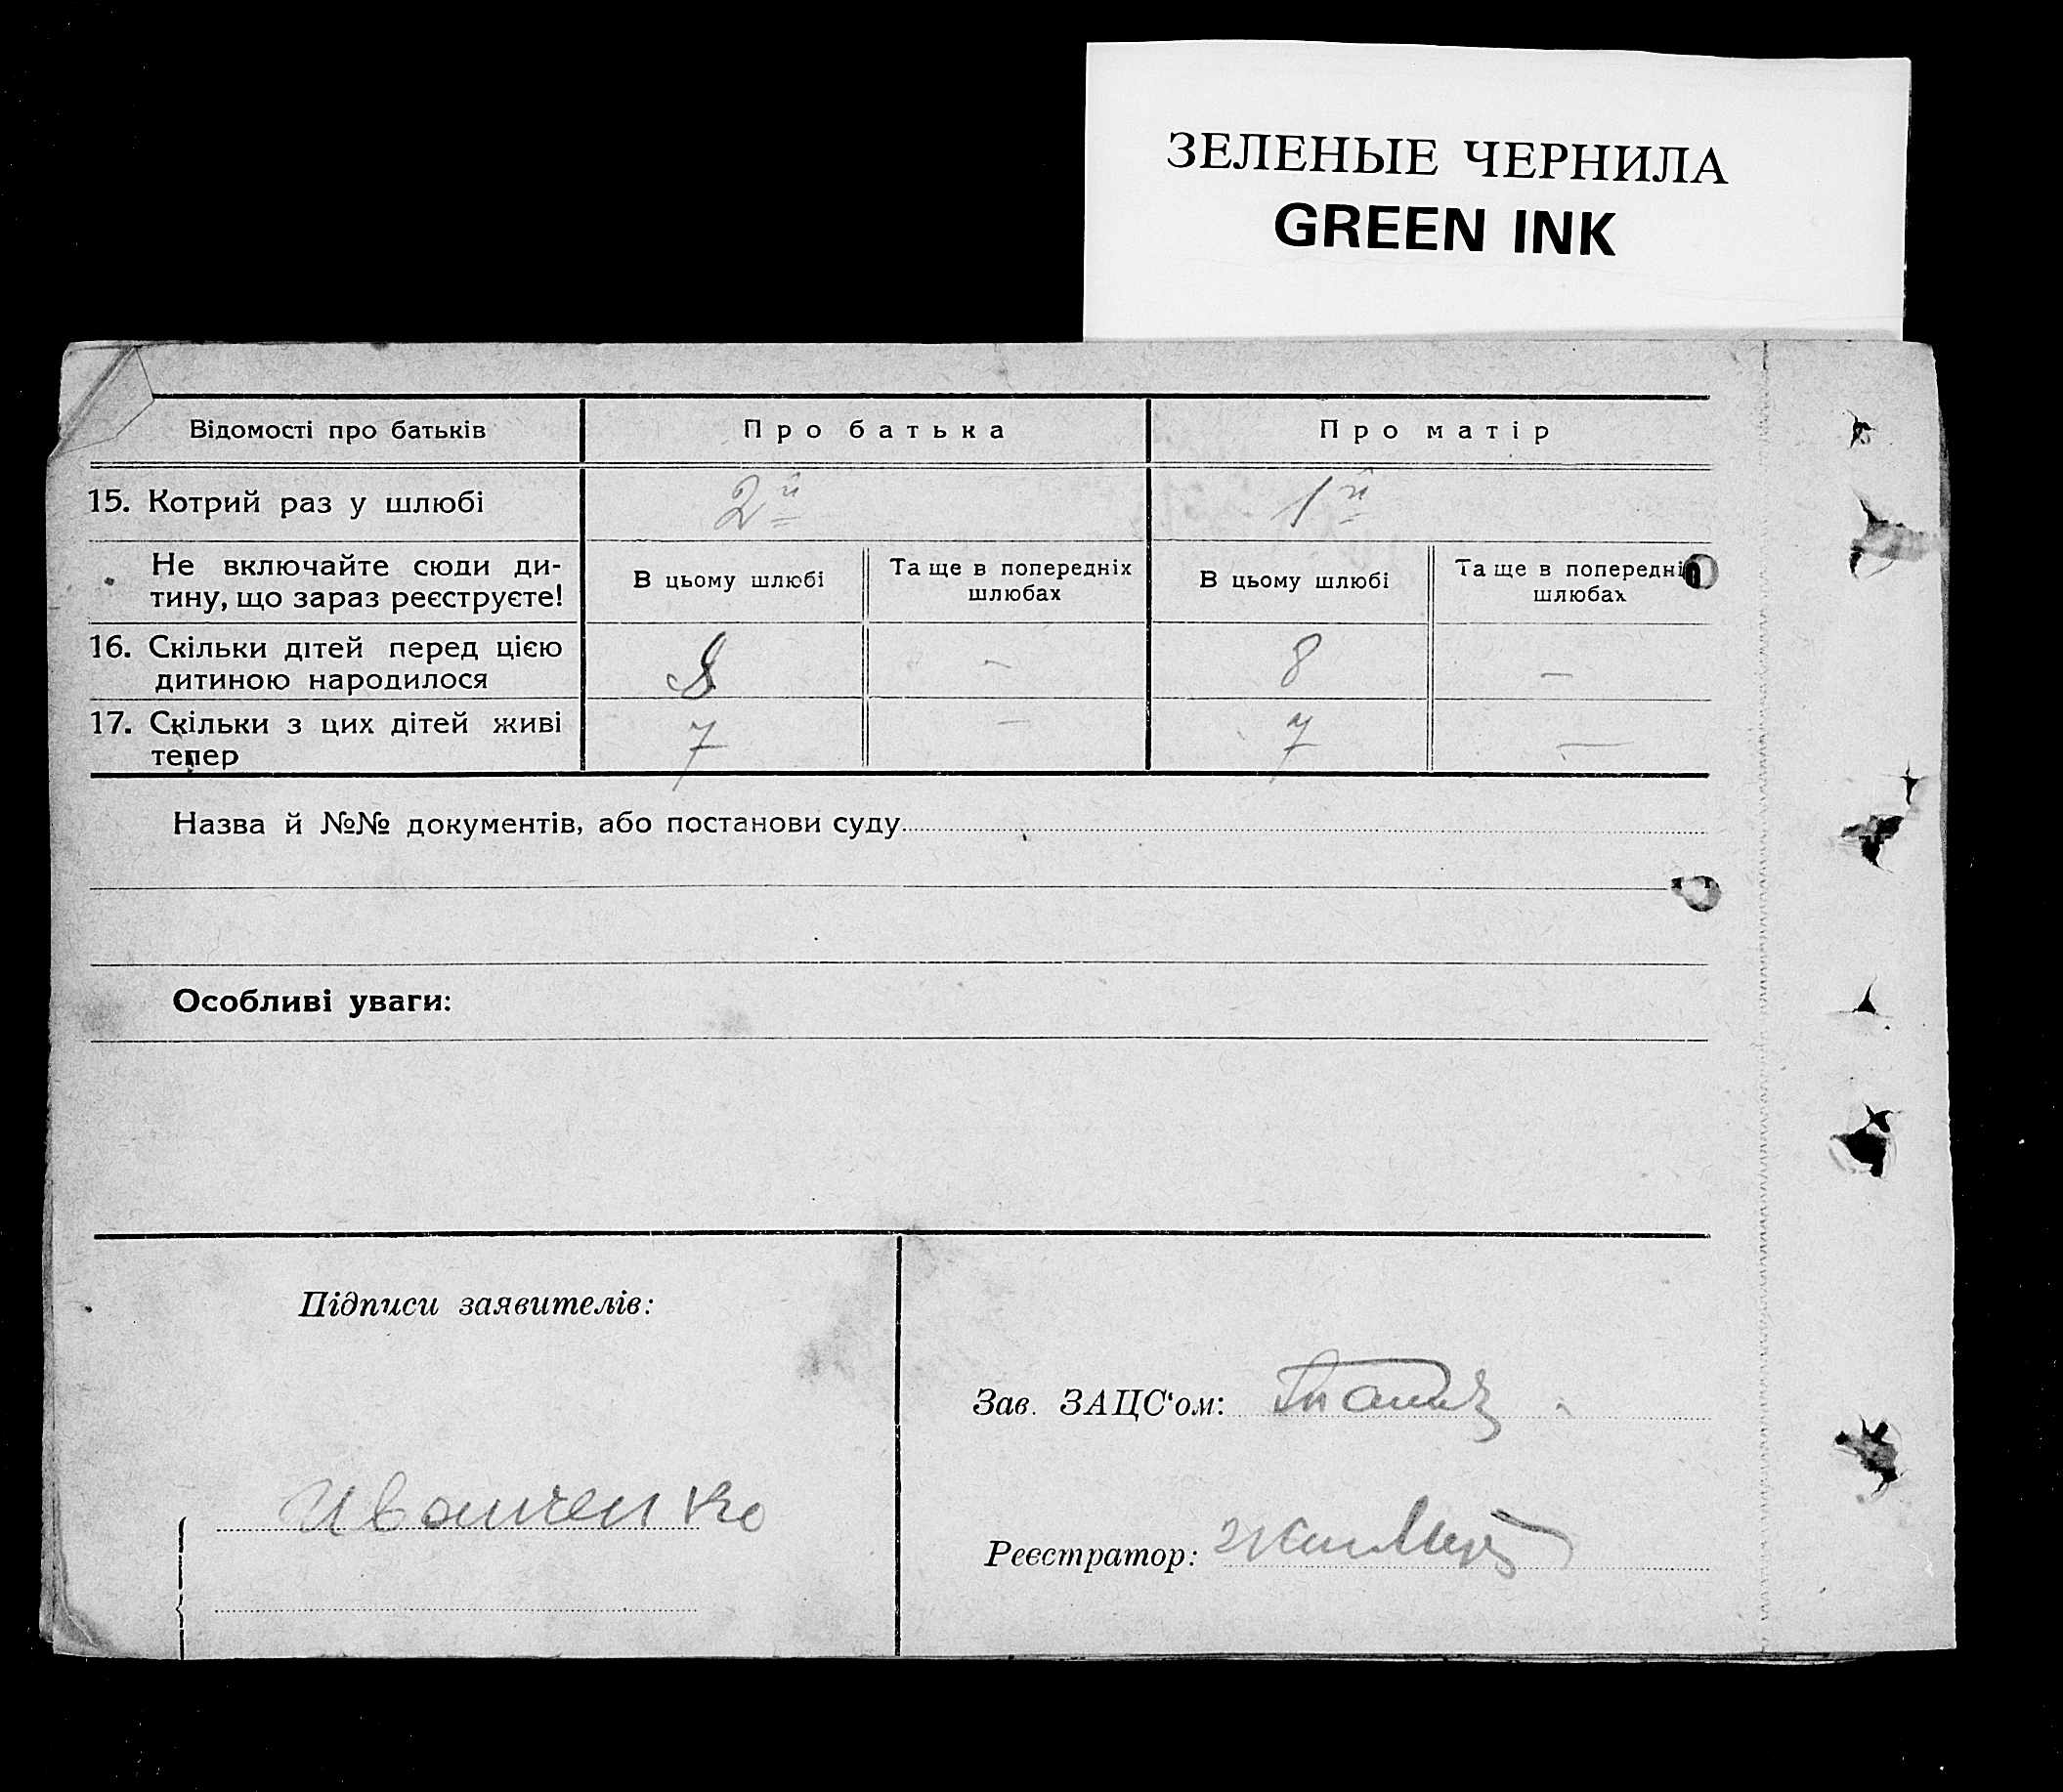 ЗЕЛЕНЫЕ ЧЕРНИЛА
GREEN INK
Відомості про батьків
Про батька
Про матір
15. Котрий раз у шлюбі
2й
1й
Не включайте сюди ди-
тину, що зараз реєструєте!
В цьому шлюбі
Та ще в попередніх
шлюбах
В цьому шлюбі
Та ще в попередні
шлюбах
16. Скільки дітей перед цією
дитиною народилося
8
—
8
—
17. Скільки з цих дітей живі
тепер
7
—
7
—
Назва й №№ документів, або постанови суду
Особливі уваги:
Підписи заявителів:
Иващенко
Зав. ЗАЦС‘ом:
Реєстратор: